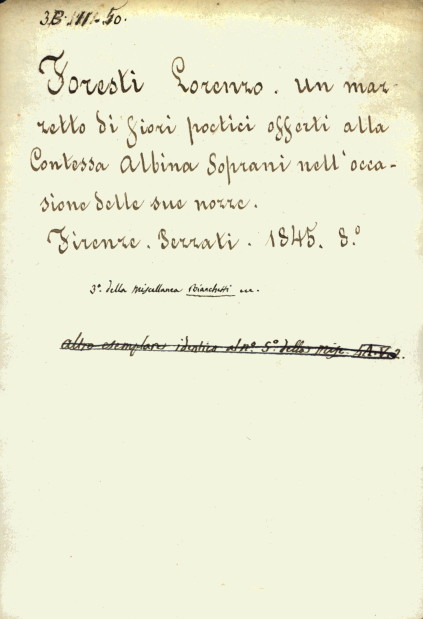 3.B.III.50.
Foresti Lorenzo. Un maz-
zetto di fiori poetici offerti alla
Contessa Albina Soprani nell'occa-
sione delle sue nozze.
Firenze. Serrati. 1845. 8.°
3°. della Miscellanea Bianchetti
altro esemplare identico al n° 5° della Misc.